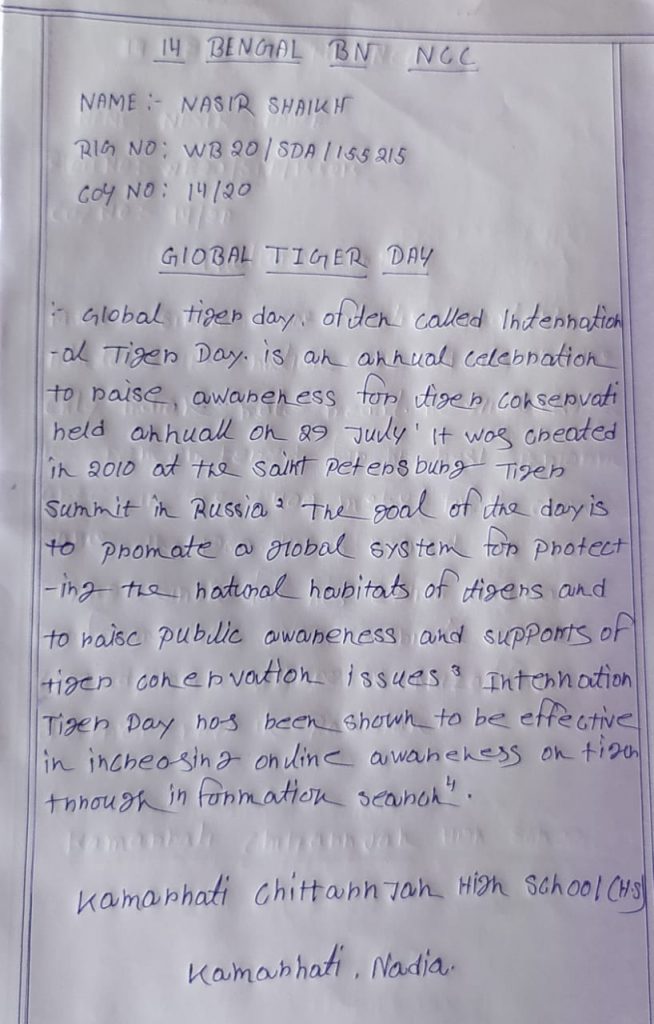 14 BENGAL BN NCC
NAME :- NASIR SHAIKH
RIG NO: WB20/SDA/155215
COY NO: 14/20
GLOBAL TIGER DAY
:- Global tiger day. ofden called Internation
-al Tiger Day. is an annual celebration
to raise, awareness for tiger conservati
held annuall on 29 July' It was created
in 2010 at the saint Petersburg Tiger
Summit in Russia² The goal of the day is
to promate a global system for protect
-ing the natural habitats of tigers and
to raise public awareness and supports of
tiger conervation issues³ Internation
Tiger Day has been shown to be effective
in increasing online awareness on tiger
through information search⁴.
Kamarhati Chittarnjan High School (H.S)
Kamarhati, Nadia.